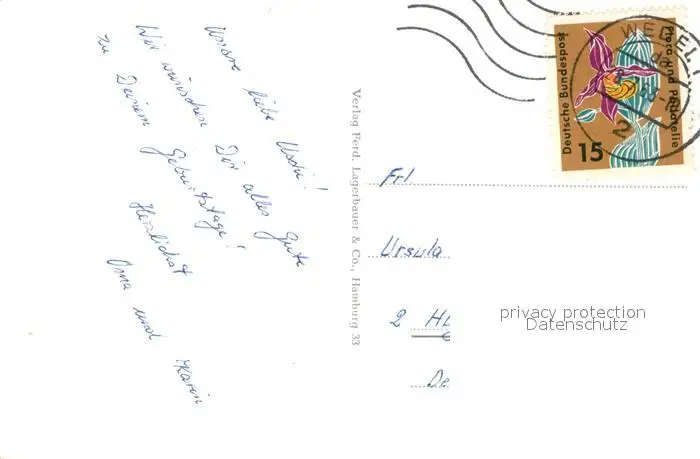 Unsere liebe Uschi!
Wir wünschen Dir alles Gute
zu Deinem Geburtstage!
Herzlichst
Oma und Karin
Verlag Ferd. Lagerbauer & Co., Hamburg 33
Frl.
Ursula
2 HH
De
Deutsche Bundespost
Flora und Philatelie
15
WEDEL
2
privacy protection
Datenschutz